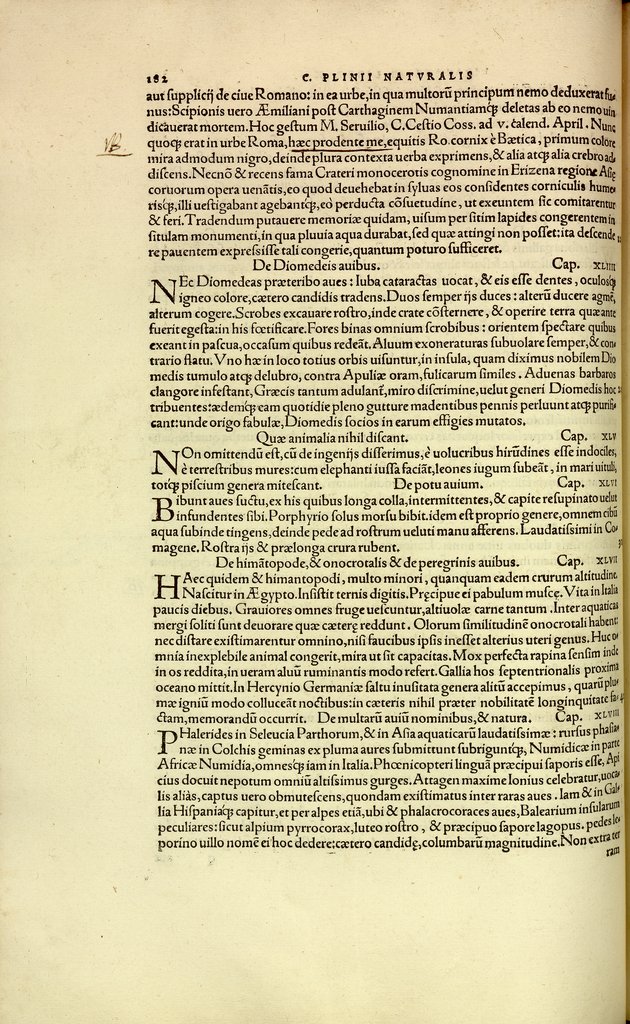 182 C. PLINII NATVRALIS
aut supplicij de ciue Romano: in ea urbe, in qua multorũ principum nemo deduxerat fu
nus: Scipionis uero Æmiliani post Carthaginem Numantiamq; deletas ab eo nemo uin
dicauerat mortem. Hoc gestum M. Seruilio, C. Cestio Coss. ad v. calend. April. Nunc
quoq; erat in urbe Roma, hæc prodente me, equitis Ro. cornix è Bætica, primum colore
mira admodum nigro, deinde plura contexta uerba exprimens, & alia atq; alia crebro ad
discens. Necnõ & recens fama Crateri monocerotis cognomine in Erizena regione Asię
coruorum opera uenātis, eo quod deuehebat in syluas eos considentes corniculis hume
risq;, illi uestigabant agebantq;, eò perducta cõsuetudine, ut exeuntem sic comitarentur
& feri. Tradendum putauere memoriæ quidam, uisum per sitim lapides congerentem in
situlam monumenti, in qua pluuia aqua durabat, sed quæ attingi non posset: ita descende
re pauentem expressisse tali congerie, quantum poturo sufficeret.
De Diomedeis auibus. Cap. XLIIII
NEc Diomedeas præteribo aues: Iuba cataractas uocat, & eis esse dentes, oculosq;
igneo colore, cætero candidis tradens. Duos semper ijs duces: alterũ ducere agmẽ,
alterum cogere. Scrobes excauare rostro, inde crate cõsternere, & operire terra quæ ante
fuerit egesta: in his fœtificare. Fores binas omnium scrobibus: orientem spectare quibus
exeant in pascua, occasum quibus redeãt. Aluum exoneraturas subuolare semper, & con
trario flatu. Vno hæ in loco totius orbis uisuntur, in insula, quam diximus nobilem Dio
medis tumulo atq; delubro, contra Apuliæ oram, fulicarum similes. Aduenas barbaros
clangore infestant, Græcis tantum adulant, miro discrimine, uelut generi Diomedis hoc
tribuentes: ædemq; eam quotidie pleno gutture madentibus pennis perluunt atq; purifi
cant: unde origo fabulæ, Diomedis socios in earum effigies mutatos.
Quæ animalia nihil discant. Cap. XLV
NOn omittendũ est, cũ de ingenijs disserimus, è uolucribus hirũdines esse indociles,
è terrestribus mures: cum elephanti iussa faciãt, leones iugum subeãt, in mari uituli,
totq; piscium genera mitescant. De potu auium. Cap. XLVI
Bibunt aues suctu, ex his quibus longa colla, intermittentes, & capite resupinato uelut
infundentes sibi. Porphyrio solus morsu bibit. idem est proprio genere, omnem cibũ
aqua subinde tingens, deinde pede ad rostrum ueluti manu afferens. Laudatissimi in Co
magene. Rostra ijs & prælonga crura rubent.
De himãtopode, & onocrotalis & de peregrinis auibus. Cap. XLVII
HAec quidem & himantopodi, multo minori, quanquam eadem crurum altitudine.
Nascitur in Ægypto. Insistit ternis digitis. Pręcipue ei pabulum muscę. Vita in Italia
paucis diebus. Grauiores omnes fruge uescuntur, altiuolæ carne tantum. Inter aquaticas
mergi soliti sunt deuorare quæ cæterę reddunt. Olorum similitudinẽ onocrotali habent:
nec distare existimarentur omnino, nisi faucibus ipsis inesset alterius uteri genus. Huc o
mnia inexplebile animal congerit, mira ut sit capacitas. Mox perfecta rapina sensim inde
in os reddita, in ueram aluũ ruminantis modo refert. Gallia hos septentrionalis proxima
oceano mittit. In Hercynio Germaniæ saltu inusitata genera alitũ accepimus, quarũ plu
mæ igniũ modo colluceãt noctibus: in cæteris nihil præter nobilitatẽ longinquitate fa
ctam, memorandũ occurrit. De multarũ auiũ nominibus, & natura. Cap. XLVIII
PHalerides in Seleucia Parthorum, & in Asia aquaticarũ laudatissimæ: rursus phasia
næ in Colchis geminas ex pluma aures submittunt subriguntq;, Numidicæ in parte
Africæ Numidia, omnesq; iam in Italia. Phœnicopteri linguã præcipui saporis esse, Api
cius docuit nepotum omniũ altissimus gurges. Attagen maxime Ionius celebratur, uoca
lis aliàs, captus uero obmutescens, quondam existimatus inter raras aues. Iam & in Gal
lia Hispaniaq; capitur, et per alpes etiã, ubi & phalacrocoraces aues, Balearium insularum
peculiares: sicut alpium pyrrocorax, luteo rostro, & præcipuo sapore lagopus. pedes le
porino uillo nomẽ ei hoc dedere: cætero candidę, columbarũ magnitudine. Non extra ter
ram